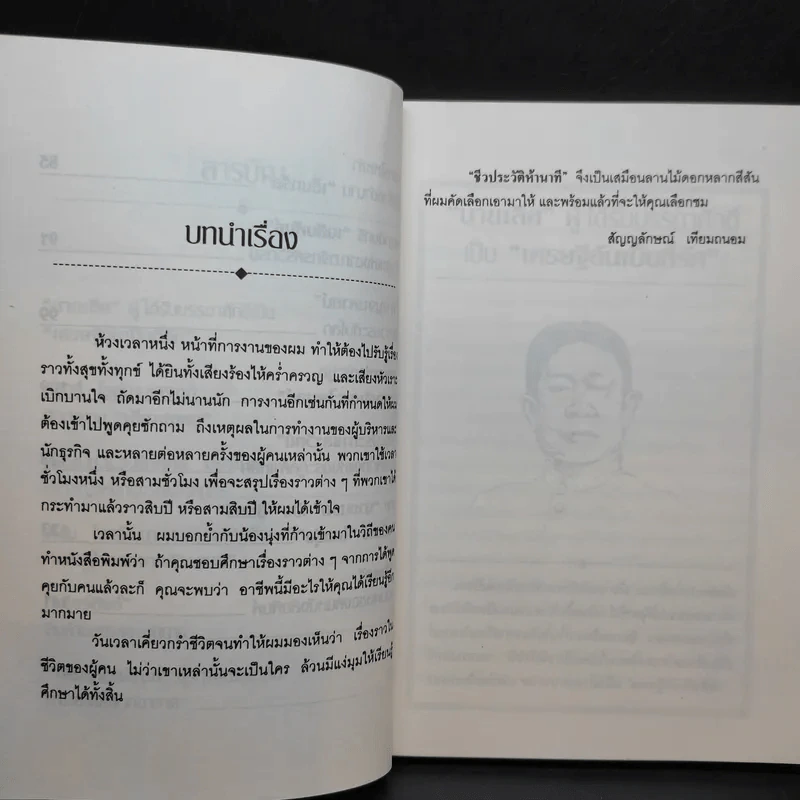 บทนำเรื่อง
ห้วงเวลาหนึ่ง หน้าที่การงานของผม ทำให้ต้องไปรับรู้เรื่อง
ราวทั้งสุขทั้งทุกข์ ได้ยินทั้งเสียงร้องไห้คร่ำครวญ และเสียงหัวเราะ
เบิกบานใจ ถัดมาอีกไม่นานนัก การงานอีกเช่นกันที่กำหนดให้ผม
ต้องเข้าไปพูดคุยซักถาม ถึงเหตุผลในการทำงานของผู้บริหารและ
นักธุรกิจ และหลายต่อหลายครั้งของผู้คนเหล่านั้น พวกเขาใช้เวลา
ชั่วโมงหนึ่ง หรือสามชั่วโมง เพื่อจะสรุปเรื่องราวต่าง ๆ ที่พวกเขาได้
กระทำมาแล้วราวสิบปี หรือสามสิบปี ให้ผมได้เข้าใจ
เวลานั้น ผมบอกย้ำกับน้องนุ่งที่ก้าวเข้ามาในวิถีของคน
ทำหนังสือพิมพ์ว่า ถ้าคุณชอบศึกษาเรื่องราวต่าง ๆ จากการได้พูด
คุยกับคนแล้วละก็ คุณจะพบว่า อาชีพนี้มีอะไรให้คุณได้เรียนรู้อีก
มากมาย
วันเวลาเคี่ยวกรำชีวิตจนทำให้ผมมองเห็นว่า เรื่องราวใน
ชีวิตของผู้คน ไม่ว่าเขาเหล่านั้นจะเป็นใคร ล้วนมีแง่มุมให้เรียนรู้
ศึกษาได้ทั้งสิ้น
"ชีวประวัติห้านาที" จึงเป็นเสมือนลานไม้ดอกหลากสีสัน
ที่ผมคัดเลือกเอามาให้ และพร้อมแล้วที่จะให้คุณเลือกชม
สัญญลักษณ์ เทียมถนอม